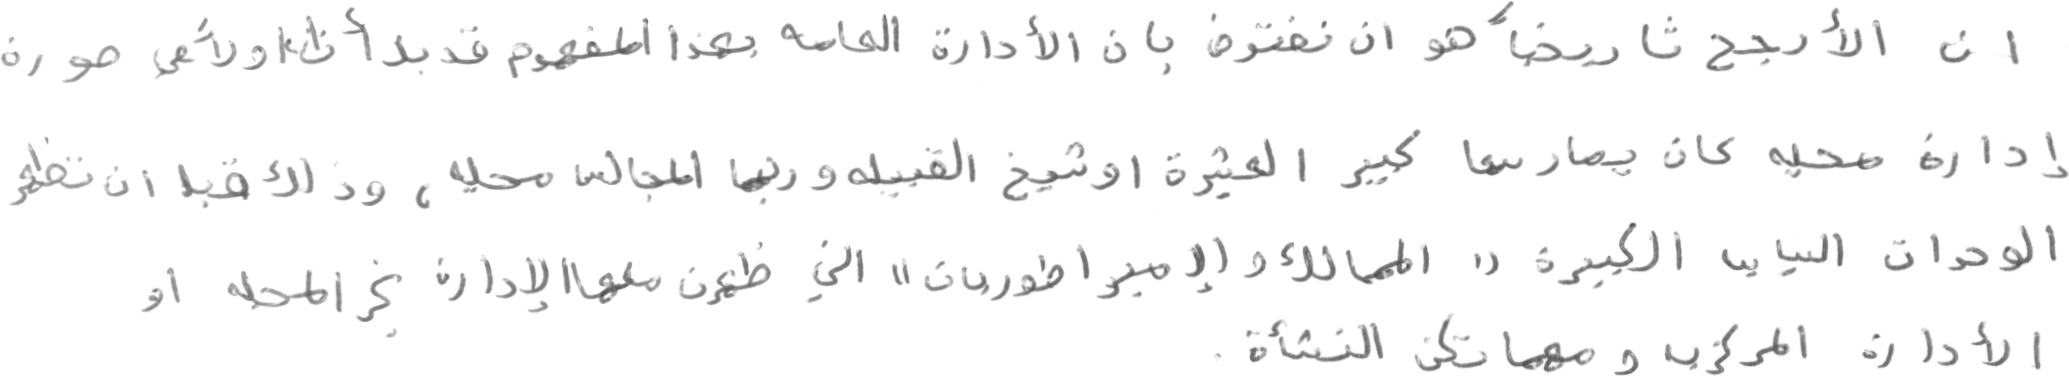 ان الأرجح تاريخياً هو ان نفترض بان الأدارة العامه بهذا المفهوم قد بدأت اولاً في صورة
إدارة محليه كان يمارسها كبير العشيرة او شيخ القبيله وربما المجالس محليه ، وذلك قبل ان تظهر
الوحدات السياسيه الكبيرة " الممالك و الإمبراطوريات " التي ظهرت معها الإدارة غير المحليه او
الأدارة المركزيه و مهما تكن النشأة .